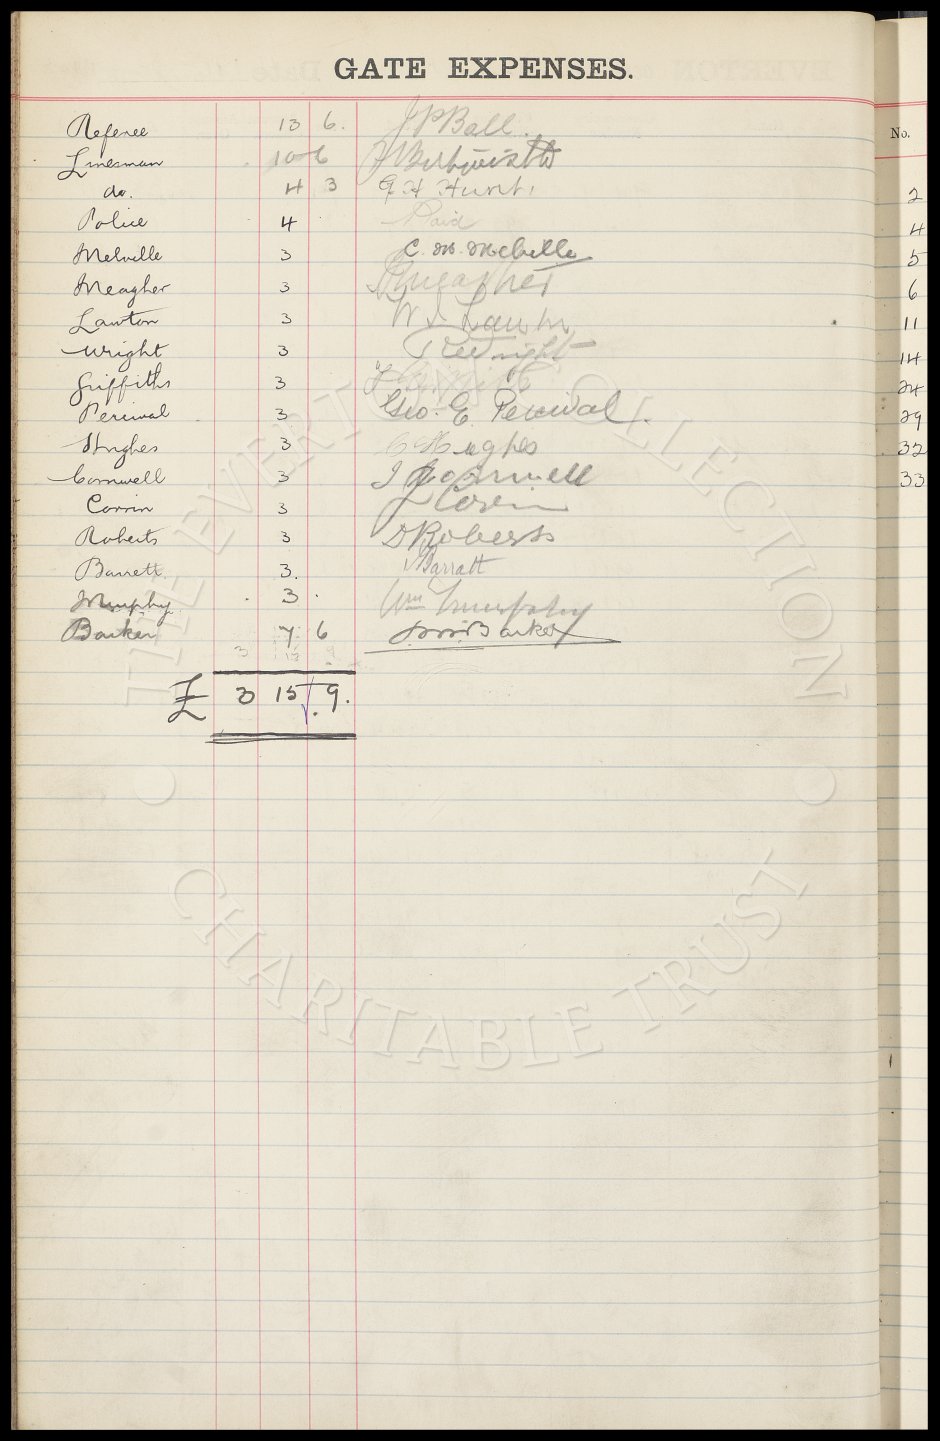 GATE EXPENSES.
Referee 13 6. J P Ball.
Linesman 10 6
do. 4 3 G H Hurst.
Police 4 Paid
Melville 3 C. M. Melville
Meagher 3 Meagher
Lawton 3 W Lawton
Wright 3 Wright
Griffiths 3
Percival 3 Geo. E. Percival.
Hughes 3 C Hughes
Cornwell 3 J Cornwell
Corrin 3 J Corrin
Roberts 3 D Roberts
Barrett. 3. Barratt
Murphy 3. Wm Murphy
Barker 7 6 Barker
3 15 9
£ 3 15 . 9.
No.
2
4
5
6
11
14
24
29
32
33
THE EVERTON COLLECTION
CHARITABLE TRUST